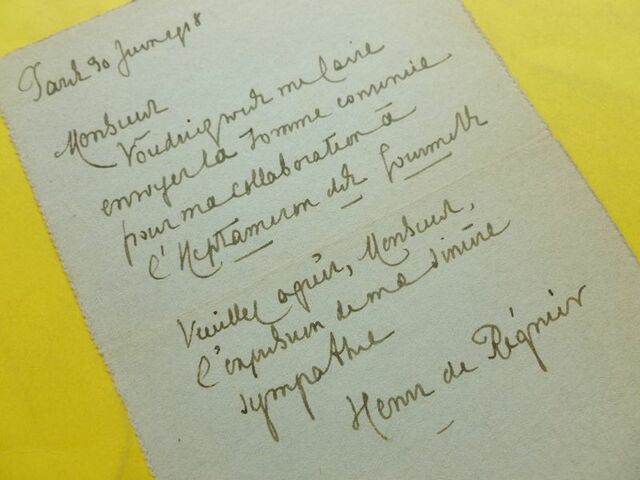 Paris 30 Janvier 1918
Monsieur
Voudriez vous me faire
envoyer la somme convenue
pour ma collaboration à
l'Heptameron des Gourmets
Veuillez agréer, Monsieur,
l'expression de ma sincère
sympathie
Henri de Régnier